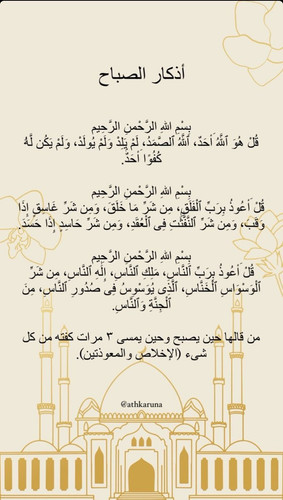 أذكار الصباح
بِسْمِ اللهِ الرَّحْمنِ الرَّحِيم
قُلْ هُوَ ٱللَّهُ أَحَدٌ، ٱللَّهُ ٱلصَّمَدُ، لَمْ يَلِدْ وَلَمْ يُولَدْ، وَلَمْ يَكُن لَّهُ
كُفُوًا أَحَدٌ.
بِسْمِ اللهِ الرَّحْمنِ الرَّحِيم
قُلْ أَعُوذُ بِرَبِّ ٱلْفَلَقِ، مِن شَرِّ مَا خَلَقَ، وَمِن شَرِّ غَاسِقٍ إِذَا
وَقَبَ، وَمِن شَرِّ ٱلنَّفَّٰثَٰتِ فِى ٱلْعُقَدِ، وَمِن شَرِّ حَاسِدٍ إِذَا حَسَدَ.
بِسْمِ اللهِ الرَّحْمنِ الرَّحِيم
قُلْ أَعُوذُ بِرَبِّ ٱلنَّاسِ، مَلِكِ ٱلنَّاسِ، إِلَٰهِ ٱلنَّاسِ، مِن شَرِّ
ٱلْوَسْوَاسِ ٱلْخَنَّاسِ، ٱلَّذِى يُوَسْوِسُ فِى صُدُورِ ٱلنَّاسِ، مِنَ
ٱلْجِنَّةِ وَٱلنَّاسِ.
من قالها حين يصبح وحين يمسى ٣ مرات كفته من كل
شىء (الإخلاص والمعوذتين).
@athkaruna